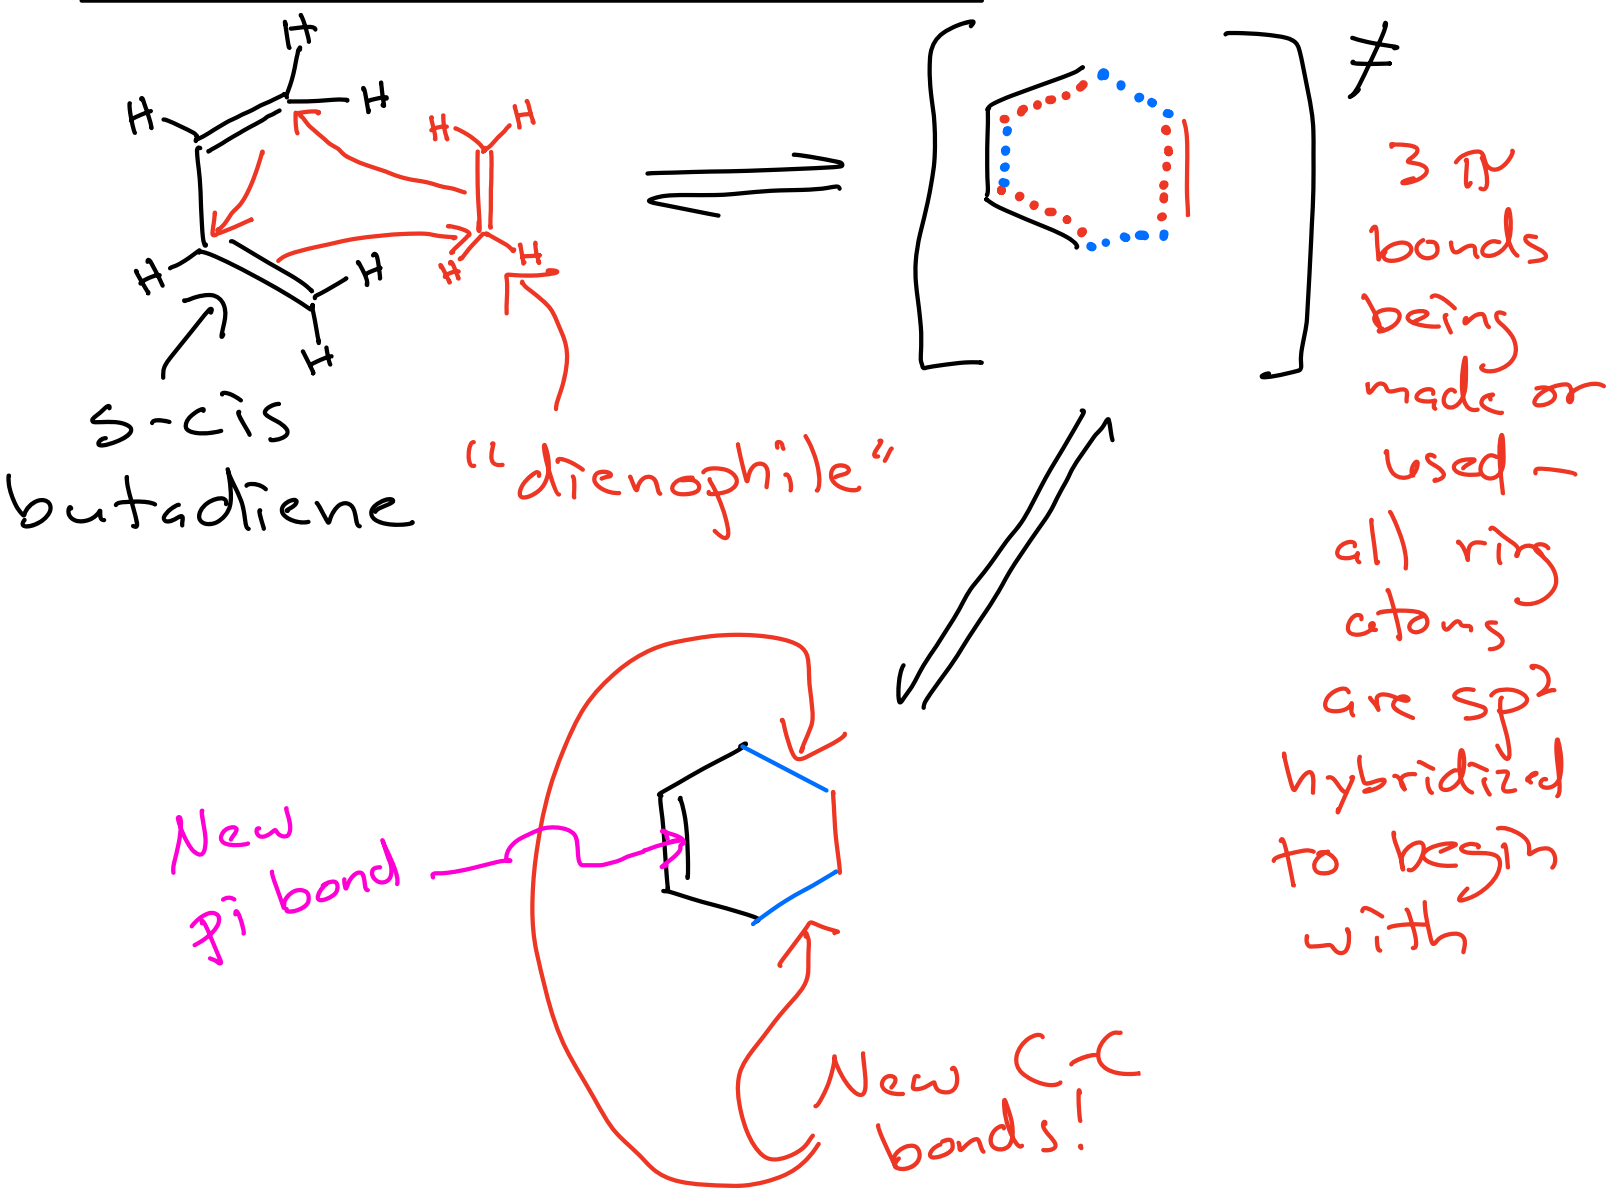 H
H
H
H
H
H
H
H
H
H
s-cis
butadiene
"dienophile"
≠
3 π
bonds
being
made or
used —
all ring
atoms
are sp²
hybridized
to begin
with
New
pi bond
New C-C
bonds!